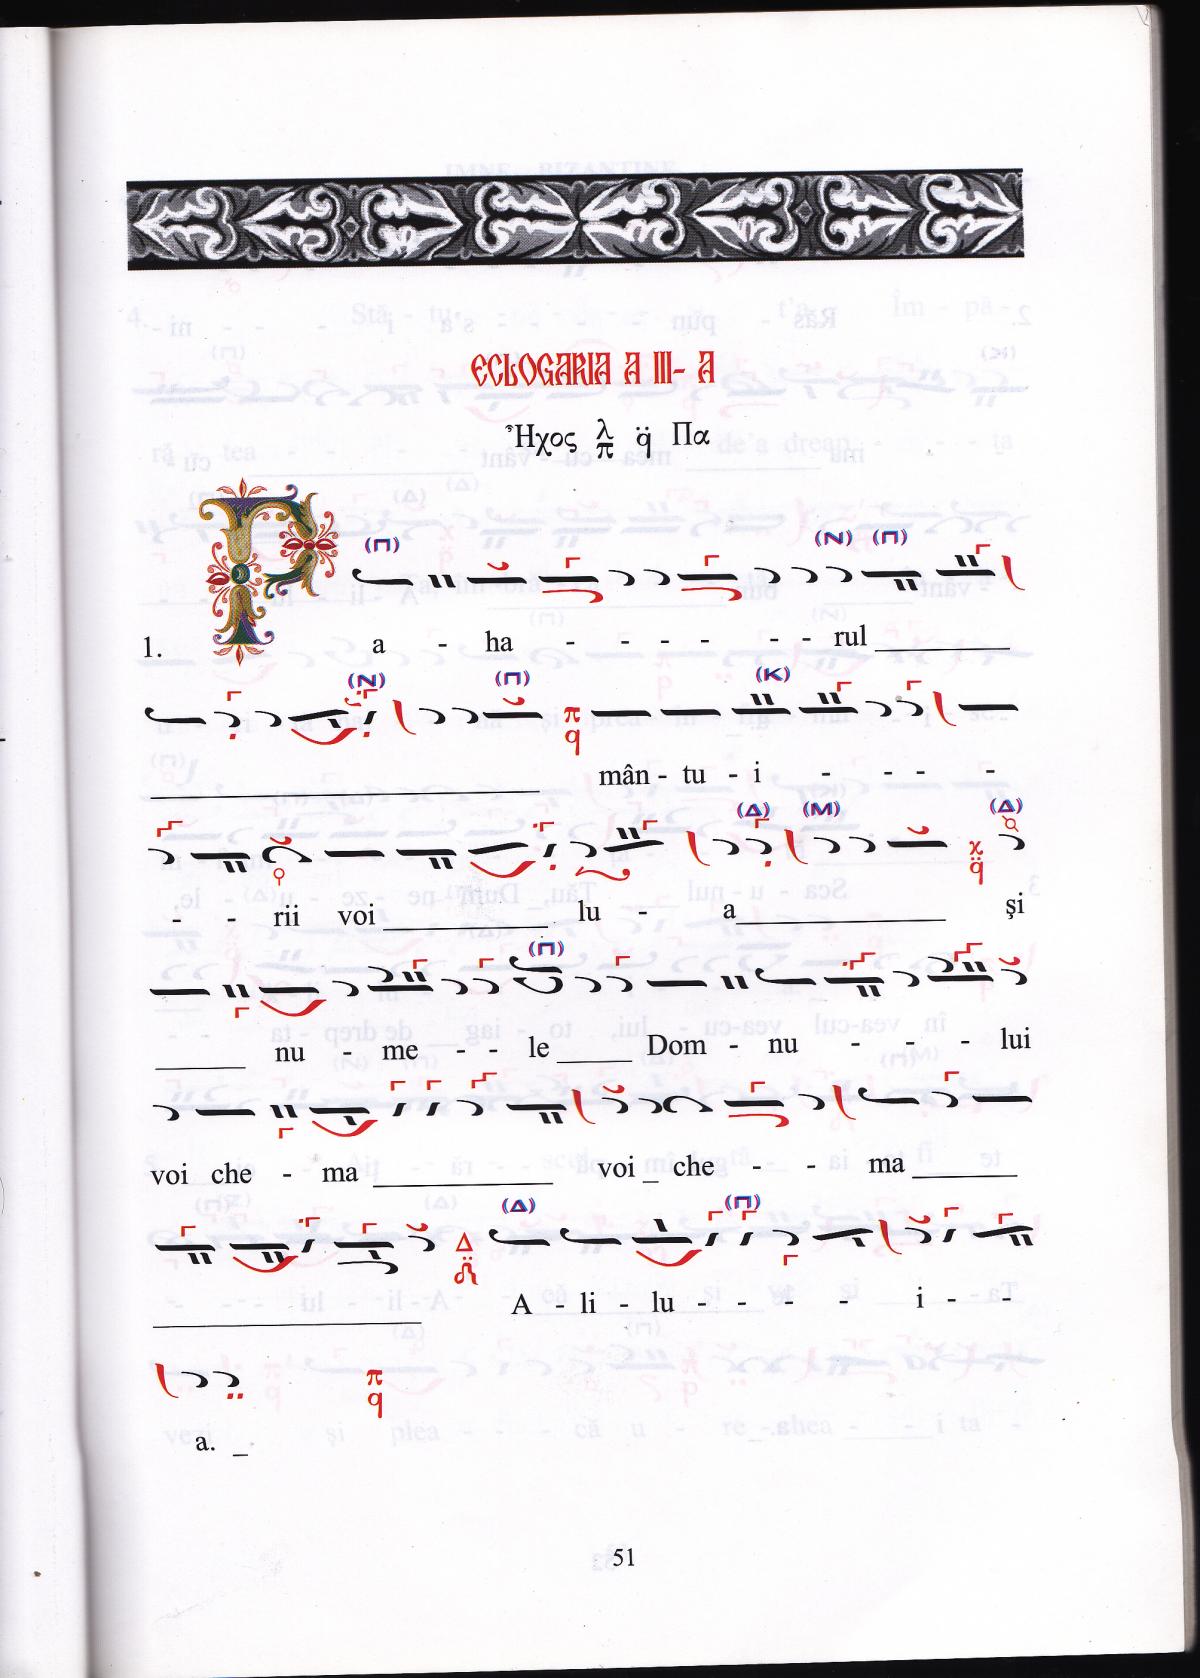 ECLOGARIA A III- A
Ἦχος λ π q Πα
(Π) (Ν) (Π)
1. P a - ha - - - - - - rul ______
(Ν) (Π) (Κ)
______ mân - tu - i - - - -
(Δ) (Μ) (Δ)
- - rii voi ______ lu - a ______ şi
(Π)
______ nu - me - - le ______ Dom - nu - - - lui
voi che - ma ______ voi _ che - - ma ______
(Δ) (Π)
______ A - li - lu - - - - i - -
a. _
51